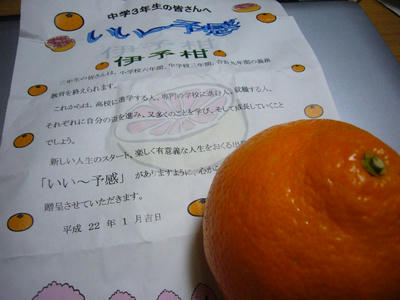 中学3年生の皆さんへ
いい～予感
伊予柑
三年生の皆さんは、小学校六年間、中学校三年間、合計九年間の義務
教育を終えられます。
これからは、高校に進学する人、専門の学校に進む人、就職する人、
それぞれに自分の道を進み、又多くのことを学び、そして成長していくこと
でしょう。
新しい人生のスタート、楽しく有意義な人生をおくる出
「いい～予感」 がありますように、心から
贈呈させていただきます。
平成 22 年 1 月吉日